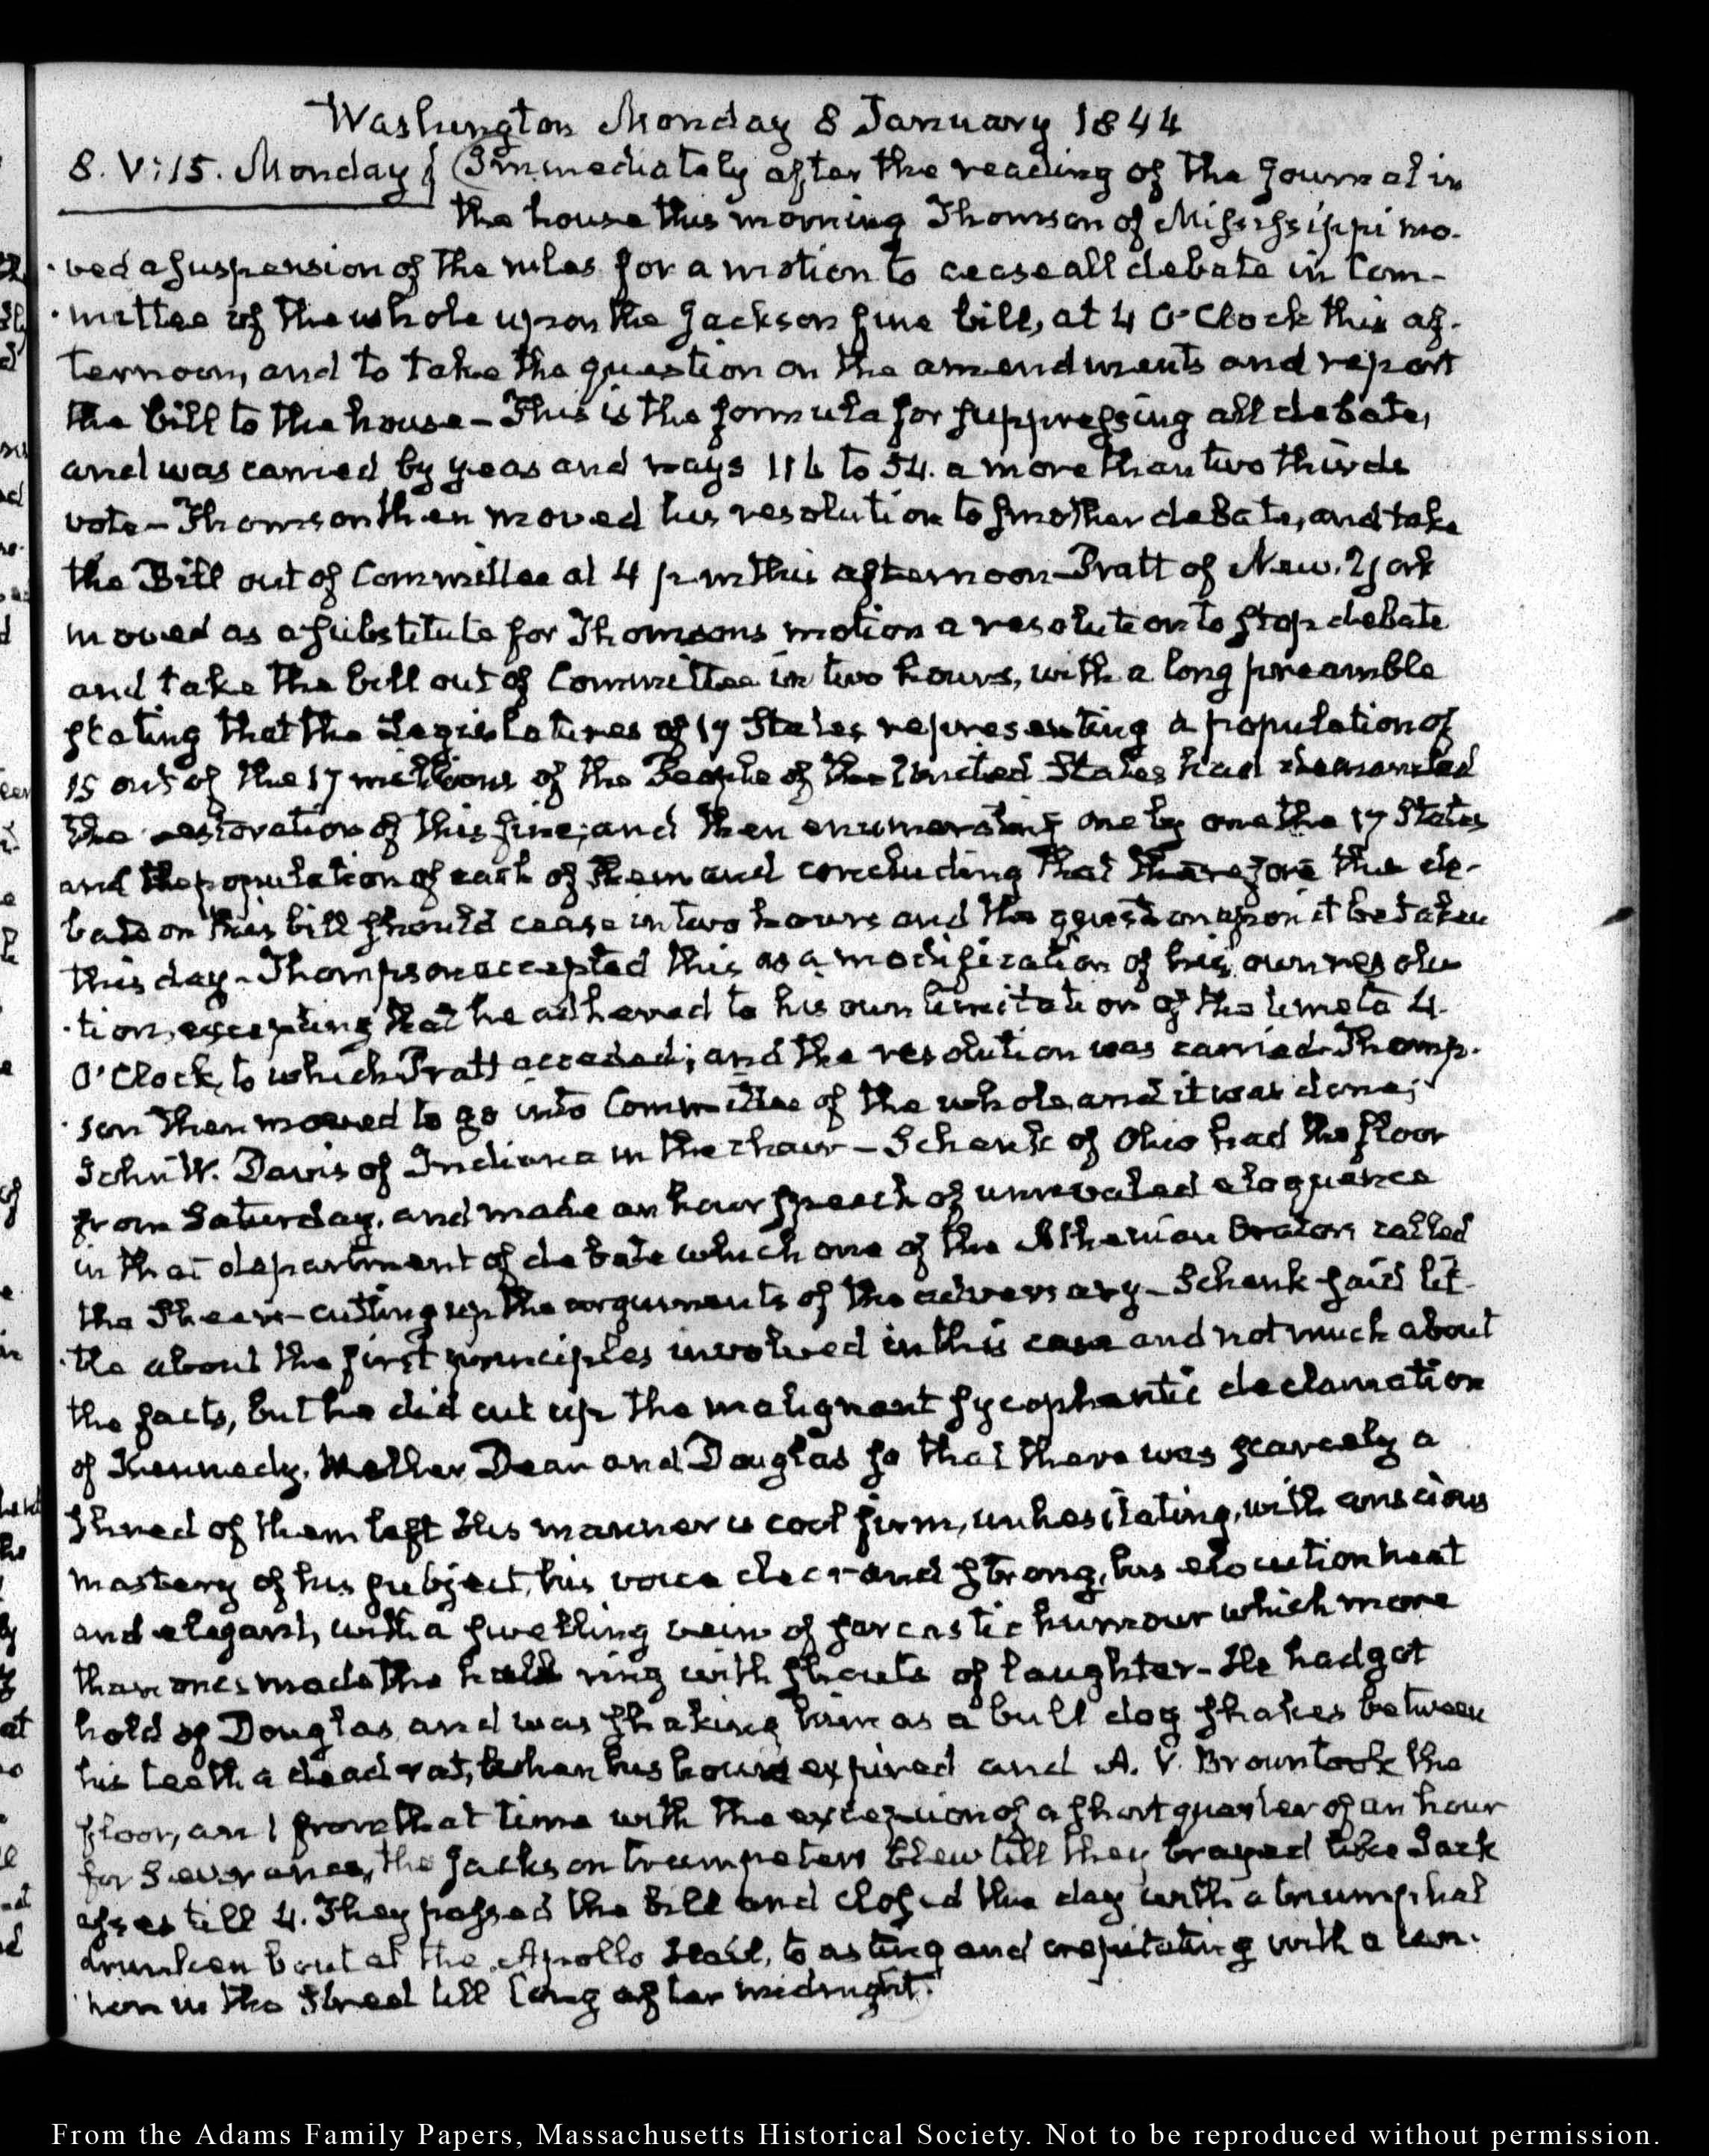 Washington Monday 8 January 1844
8. V:15. Monday} Immediately after the reading of the Journal in
the house this morning Thomson of Mississippi mo-
-ved a suspension of the rules for a motion to cease all debate in Com-
-mittee of the whole upon the Jackson fine bill, at 4 O'Clock this af-
ternoon, and to take the question on the amendments and report
the bill to the house - This is the formula for suppressing all debate,
and was carried by yeas and nays 116 to 54. a more than two thirds
vote - Thomson then moved his resolution to smother debate, and take
the Bill out of Committee at 4 p.m this afternoon - Pratt of New-York
moved as a substitute for Thomsons motion a resolution to stop debate
and take the bill out of Committee in two hours, with a long preamble
stating that the Legislatures of 17 States representing a population of
15 out of the 17 millions of the People of the United States had demanded
the restoration of this fine; and then enumerating one by one the 17 States
and the population of each of them and concluding that therefore the de-
bate on this bill should cease in two hours and the question upon it be taken
this day - Thompson accepted this as a modification of his own resolu
-tion, excepting that he adhered to his own limitation of the time to 4.
O'Clock, to which Pratt acceded; and the resolution was carried - Thomp-
-son then moved to go into Committee of the whole and it was done;
John W. Davis of Indiana in the chair - Schenk of Ohio had the floor
from Saturday, and made an hour speech of unrivaled eloquence
in that department of debate which one of the Athenian Orators called
the Shears - cutting up the arguments of the adversary - Schenk said lit-
-tle about the first principles involved in this case and not much about
the facts, but he did cut up the malignant sycophantic declamation
of Kennedy, Weller Dean and Douglas so that there was scarcely a
shred of them left His manner is cool firm, unhesitating, with conscious
mastery of his subject, his voice clear and strong, his elocution neat
and elegant, with a swelling vein of sarcastic humour which more
than once made the hall ring with shouts of laughter - He had got
hold of Douglas and was shaking him as a bull dog shakes between
his teeth a dead rat, when his hour expired and A. V. Brown took the
floor, and from that time with the exception of a short quarter of an hour
for Severance, the Jackson trumpeters blew till they brayed like Jack
asses till 4. They passed the bill and closed the day with a triumphal
drunken bout at the Apollo Hall, toasting and crepitating with a can-
non in the Street till long after midnight.
From the Adams Family Papers, Massachusetts Historical Society. Not to be reproduced without permission.